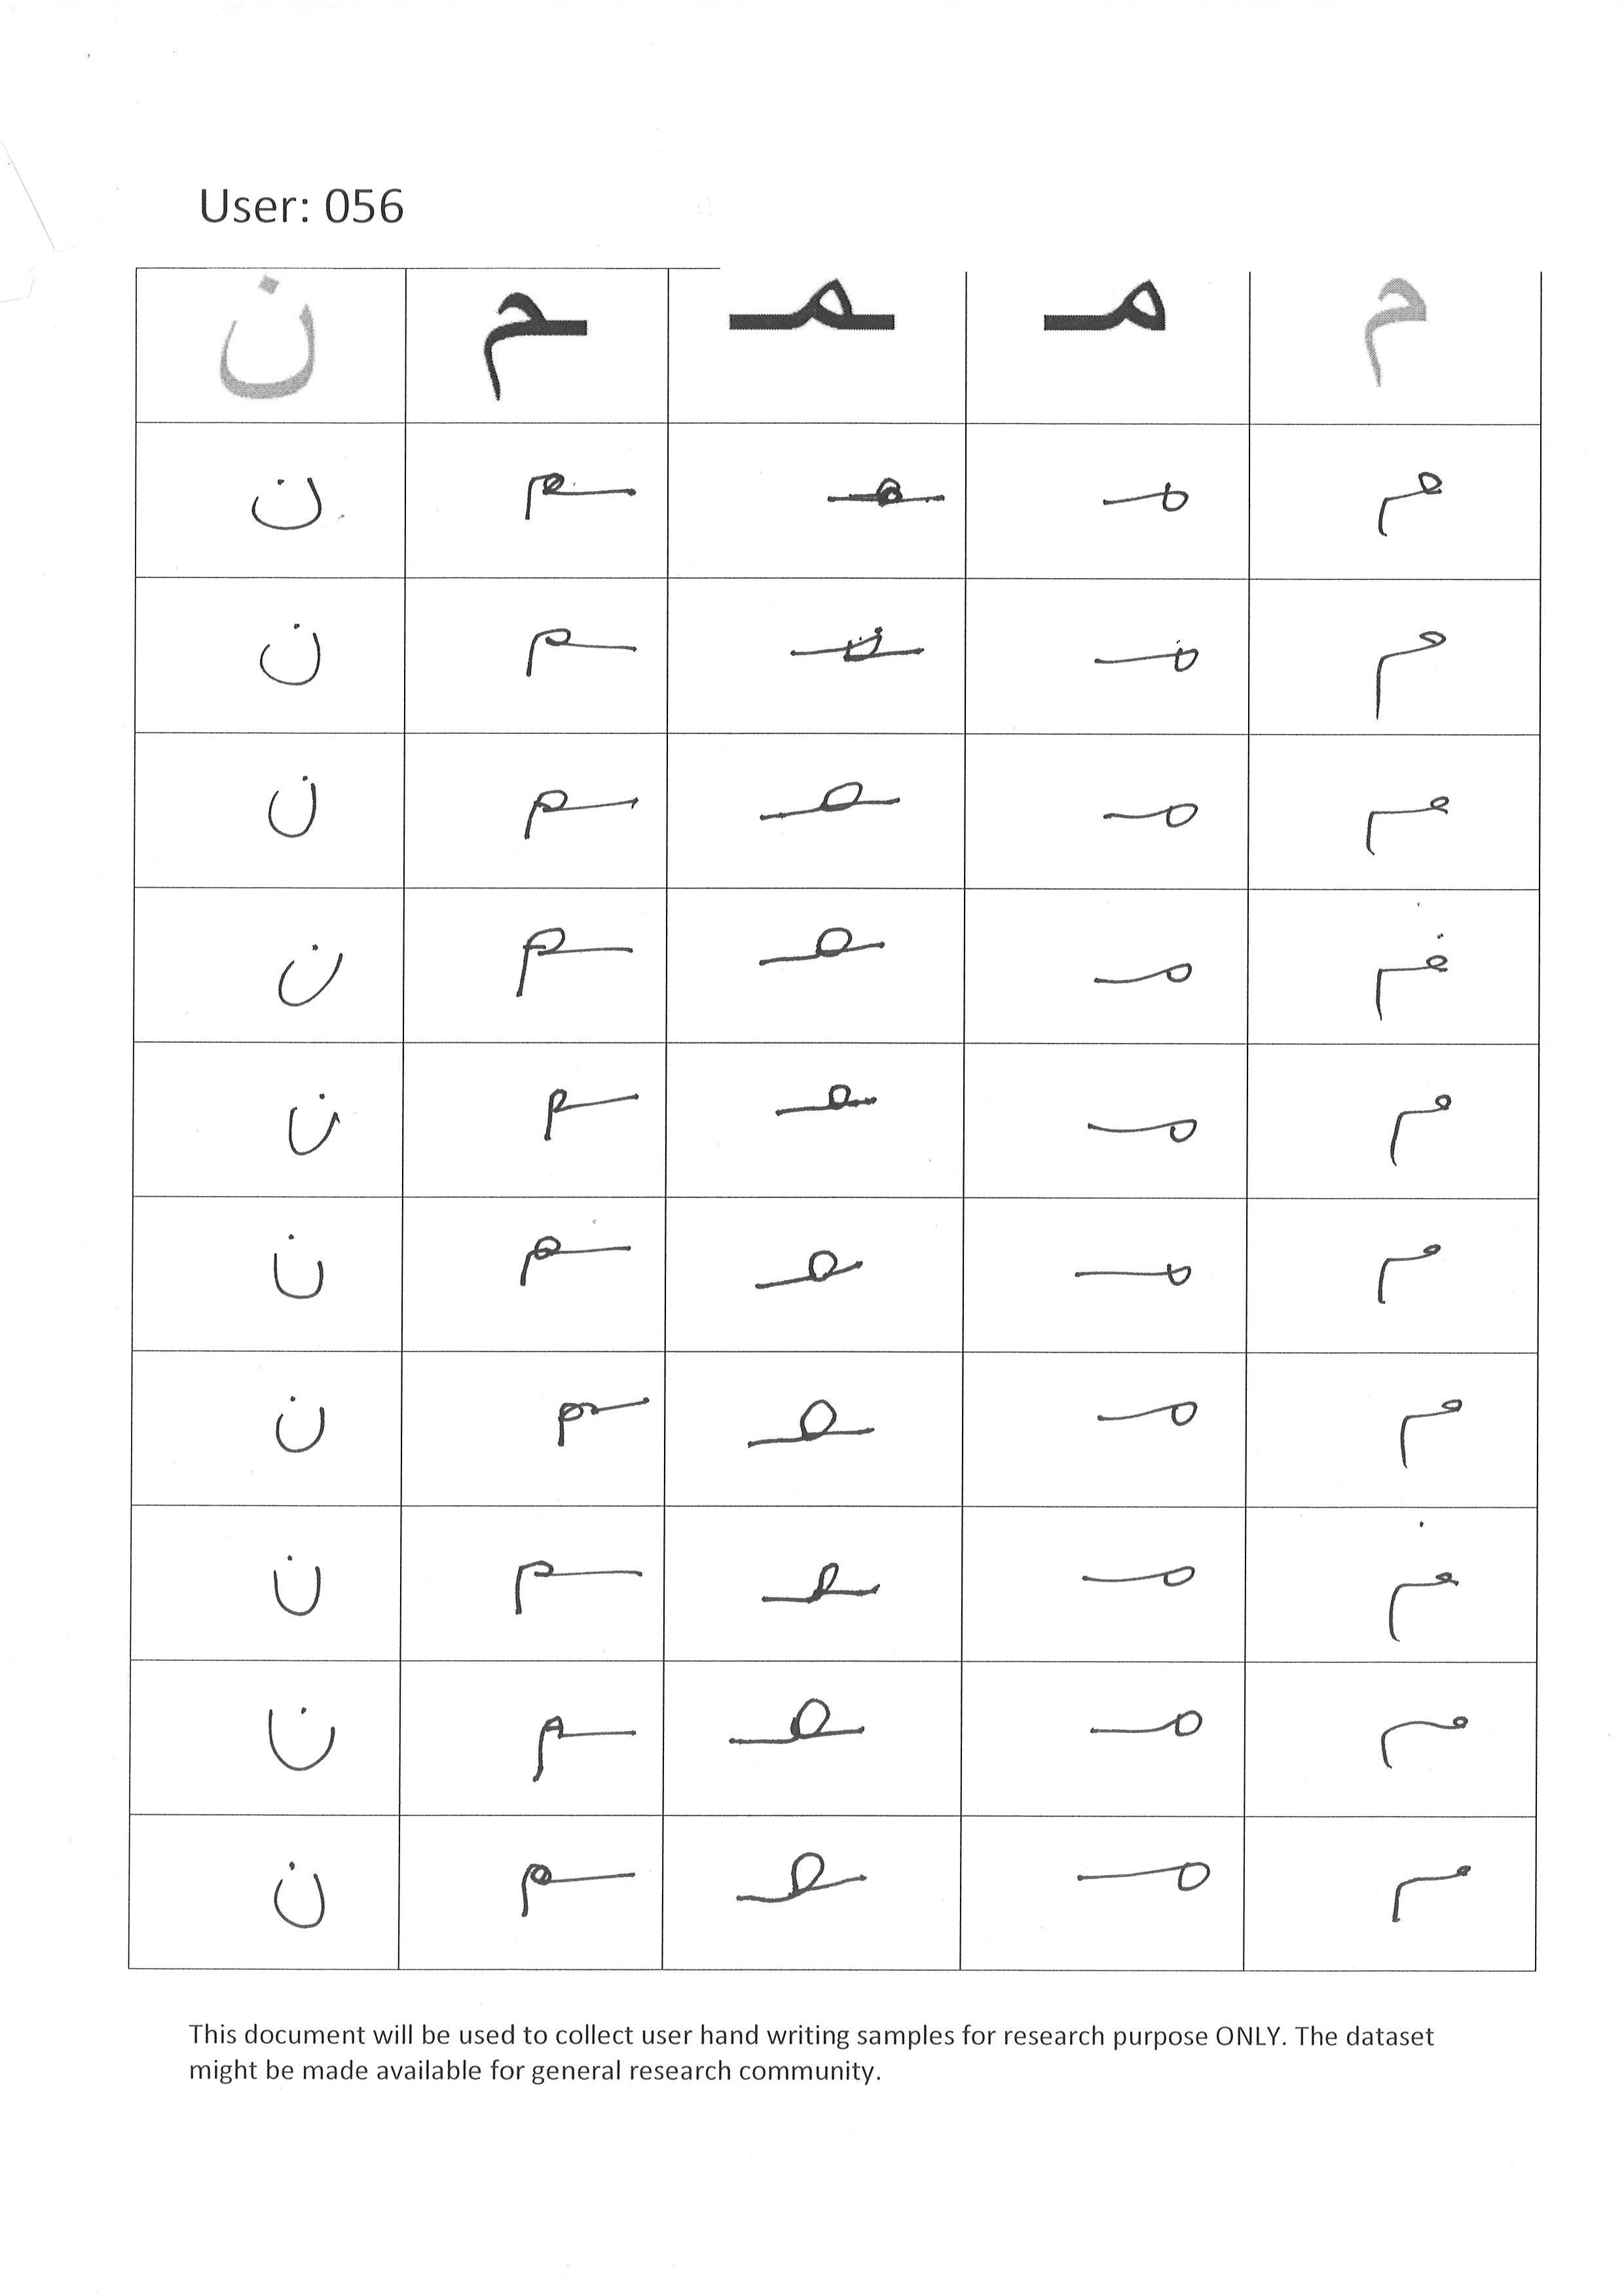 User: 056
م مـ ـمـ ـم ن
م مـ ـمـ ـم ن
م مـ ـمـ ـم ن
م مـ ـمـ ـم ن
م مـ ـمـ ـم ن
م مـ ـمـ ـم ن
م مـ ـمـ ـم ن
م مـ ـمـ ـم ن
م مـ ـمـ ـم ن
م مـ ـمـ ـم ن
م مـ ـمـ ـم ن
This document will be used to collect user hand writing samples for research purpose ONLY. The dataset
might be made available for general research community.